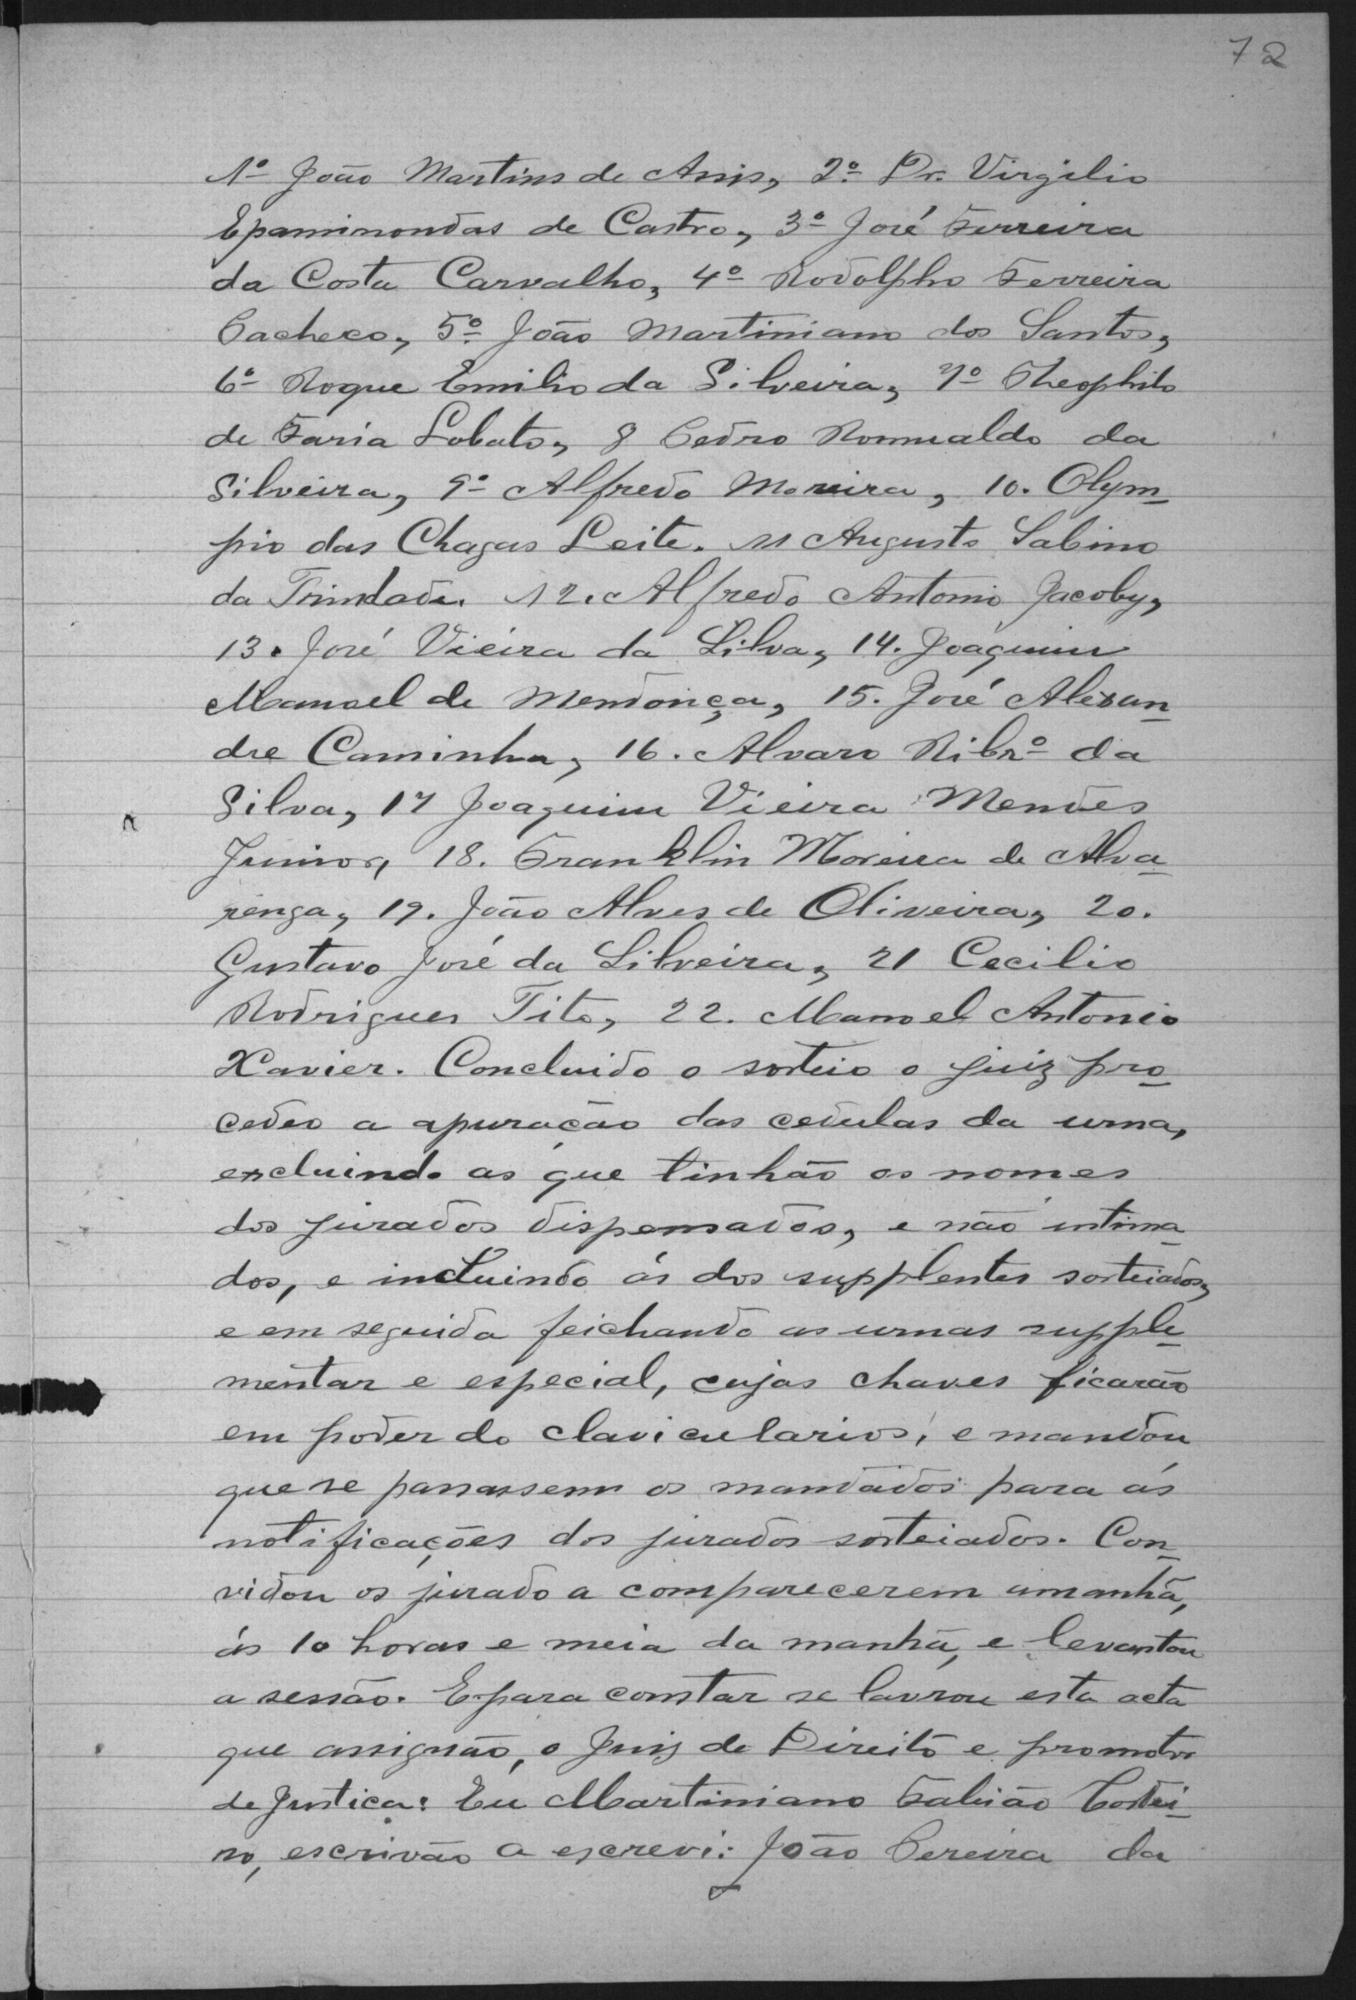 72
1º João Martins de Assis, 2º Dr. Virgilio
Epaminondas de Castro, 3º José Ferreira
da Costa Carvalho, 4º Rodolpho Ferreira
Pacheco, 5º João Martiniano dos Santos,
6º Roque Emilio da Silveira, 7º Theophilo
de Faria Lobato, 8 Pedro Romualdo da
Silveira, 9º Alfredo Moreira, 10. Olym-
pio das Chagas Leite. 11 Augusto Sabino
da Trindade. 12. Alfredo Antonio Jacoby,
13. José Vieira da Silva, 14. Joaquim
Manoel de Mendonça, 15. José Alexan-
dre Caminha, 16. Alvaro Ribrº da
Silva, 17 Joaquim Vieira Mendes
Junior, 18. Franklin Moreira de Alva-
renga, 19. João Alves de Oliveira, 20.
Gustavo José da Silveira, 21 Cecilio
Rodrigues Tito, 22. Manoel Antonio
Xavier. Concluido o sorteio o juiz pro-
cedeo a apuração das cedulas da urna,
excluindo as que tinhão os nomes
dos jurados dispensados, e não intima-
dos, e incluindo ás dos supplentes sorteiados,
e em seguida feichando as urnas supple-
mentar e especial, cujas chaves ficarão
em poder do clavicularios, e mandou
que se passassem os mandados para ás
notificações dos jurados sorteiados. Con-
vidou os jurado a comparecerem amanhã,
ás 10 horas e meia da manhã, e levantou
a sessão. E para constar se lavrou esta acta
que assignão, o Juiz de Direito e promotor
de Justica: Eu Martiniano Fabião
escrivão a escrevi: João Pereira da